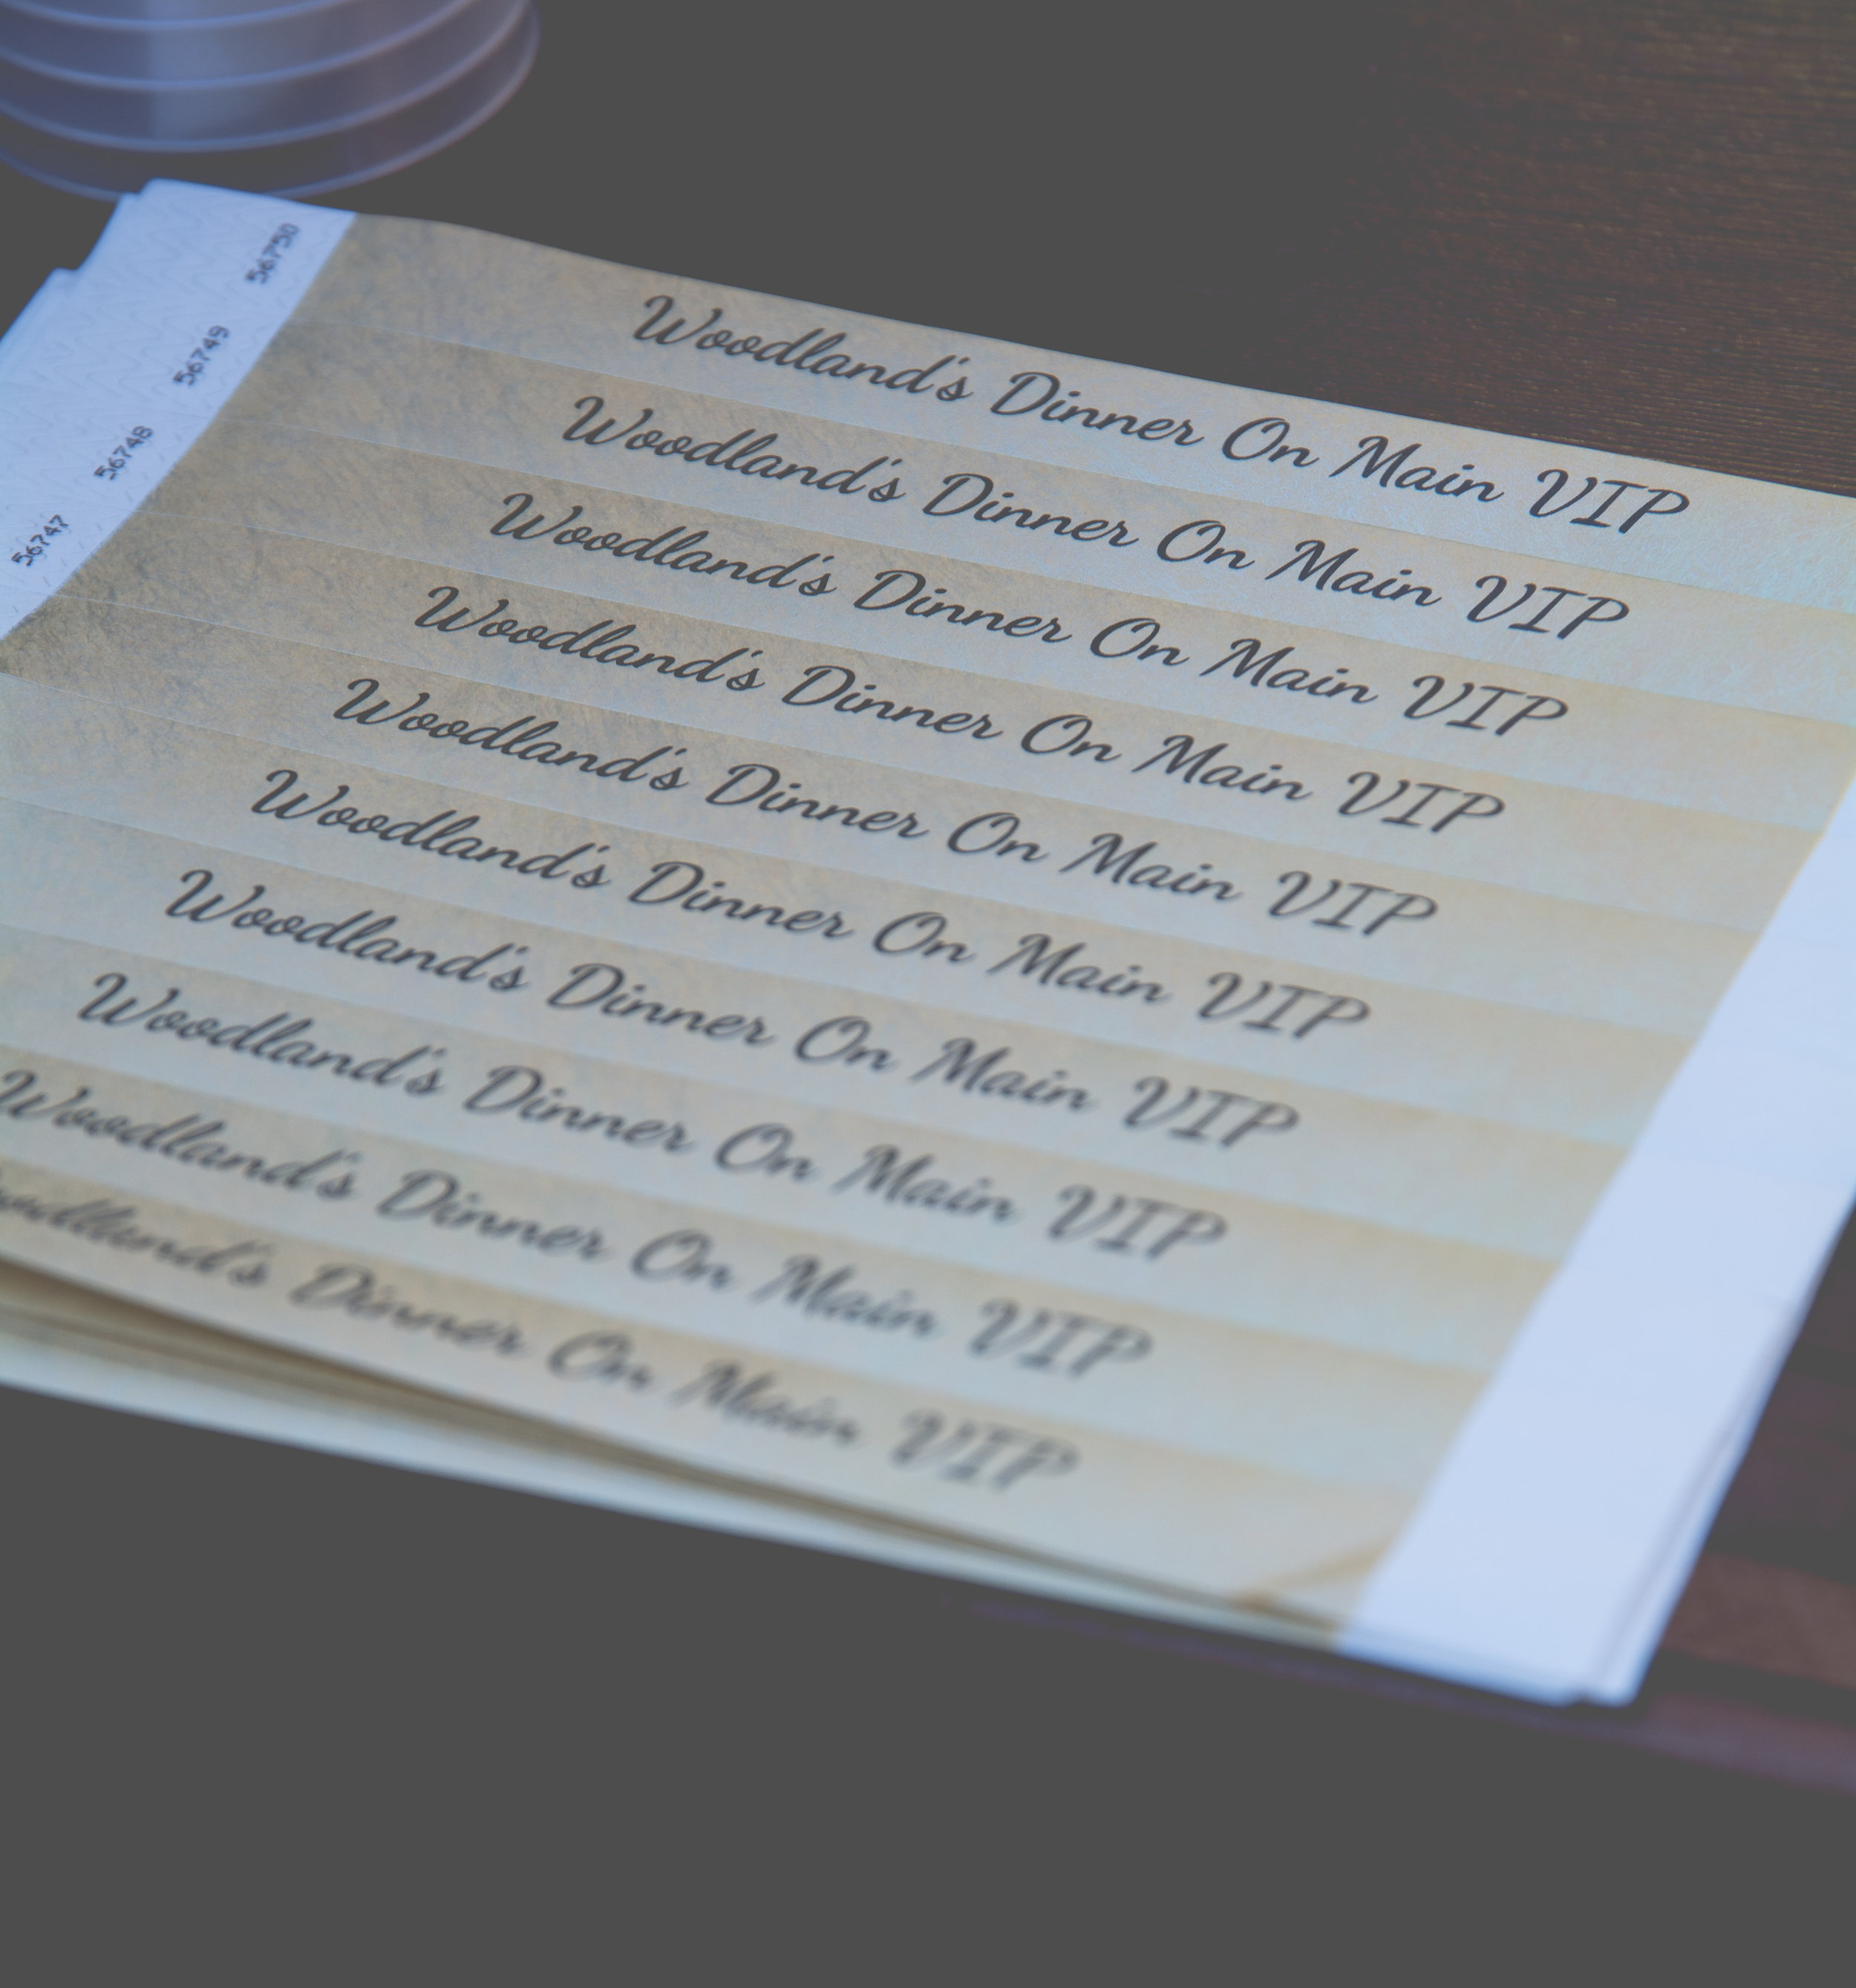 56750
Woodland's Dinner On Main VIP
56749
Woodland's Dinner On Main VIP
56748
Woodland's Dinner On Main VIP
56747
Woodland's Dinner On Main VIP
Woodland's Dinner On Main VIP
Woodland's Dinner On Main VIP
Woodland's Dinner On Main VIP
Woodland's Dinner On Main VIP
Woodland's Dinner On Main VIP
Dinner On Main VIP